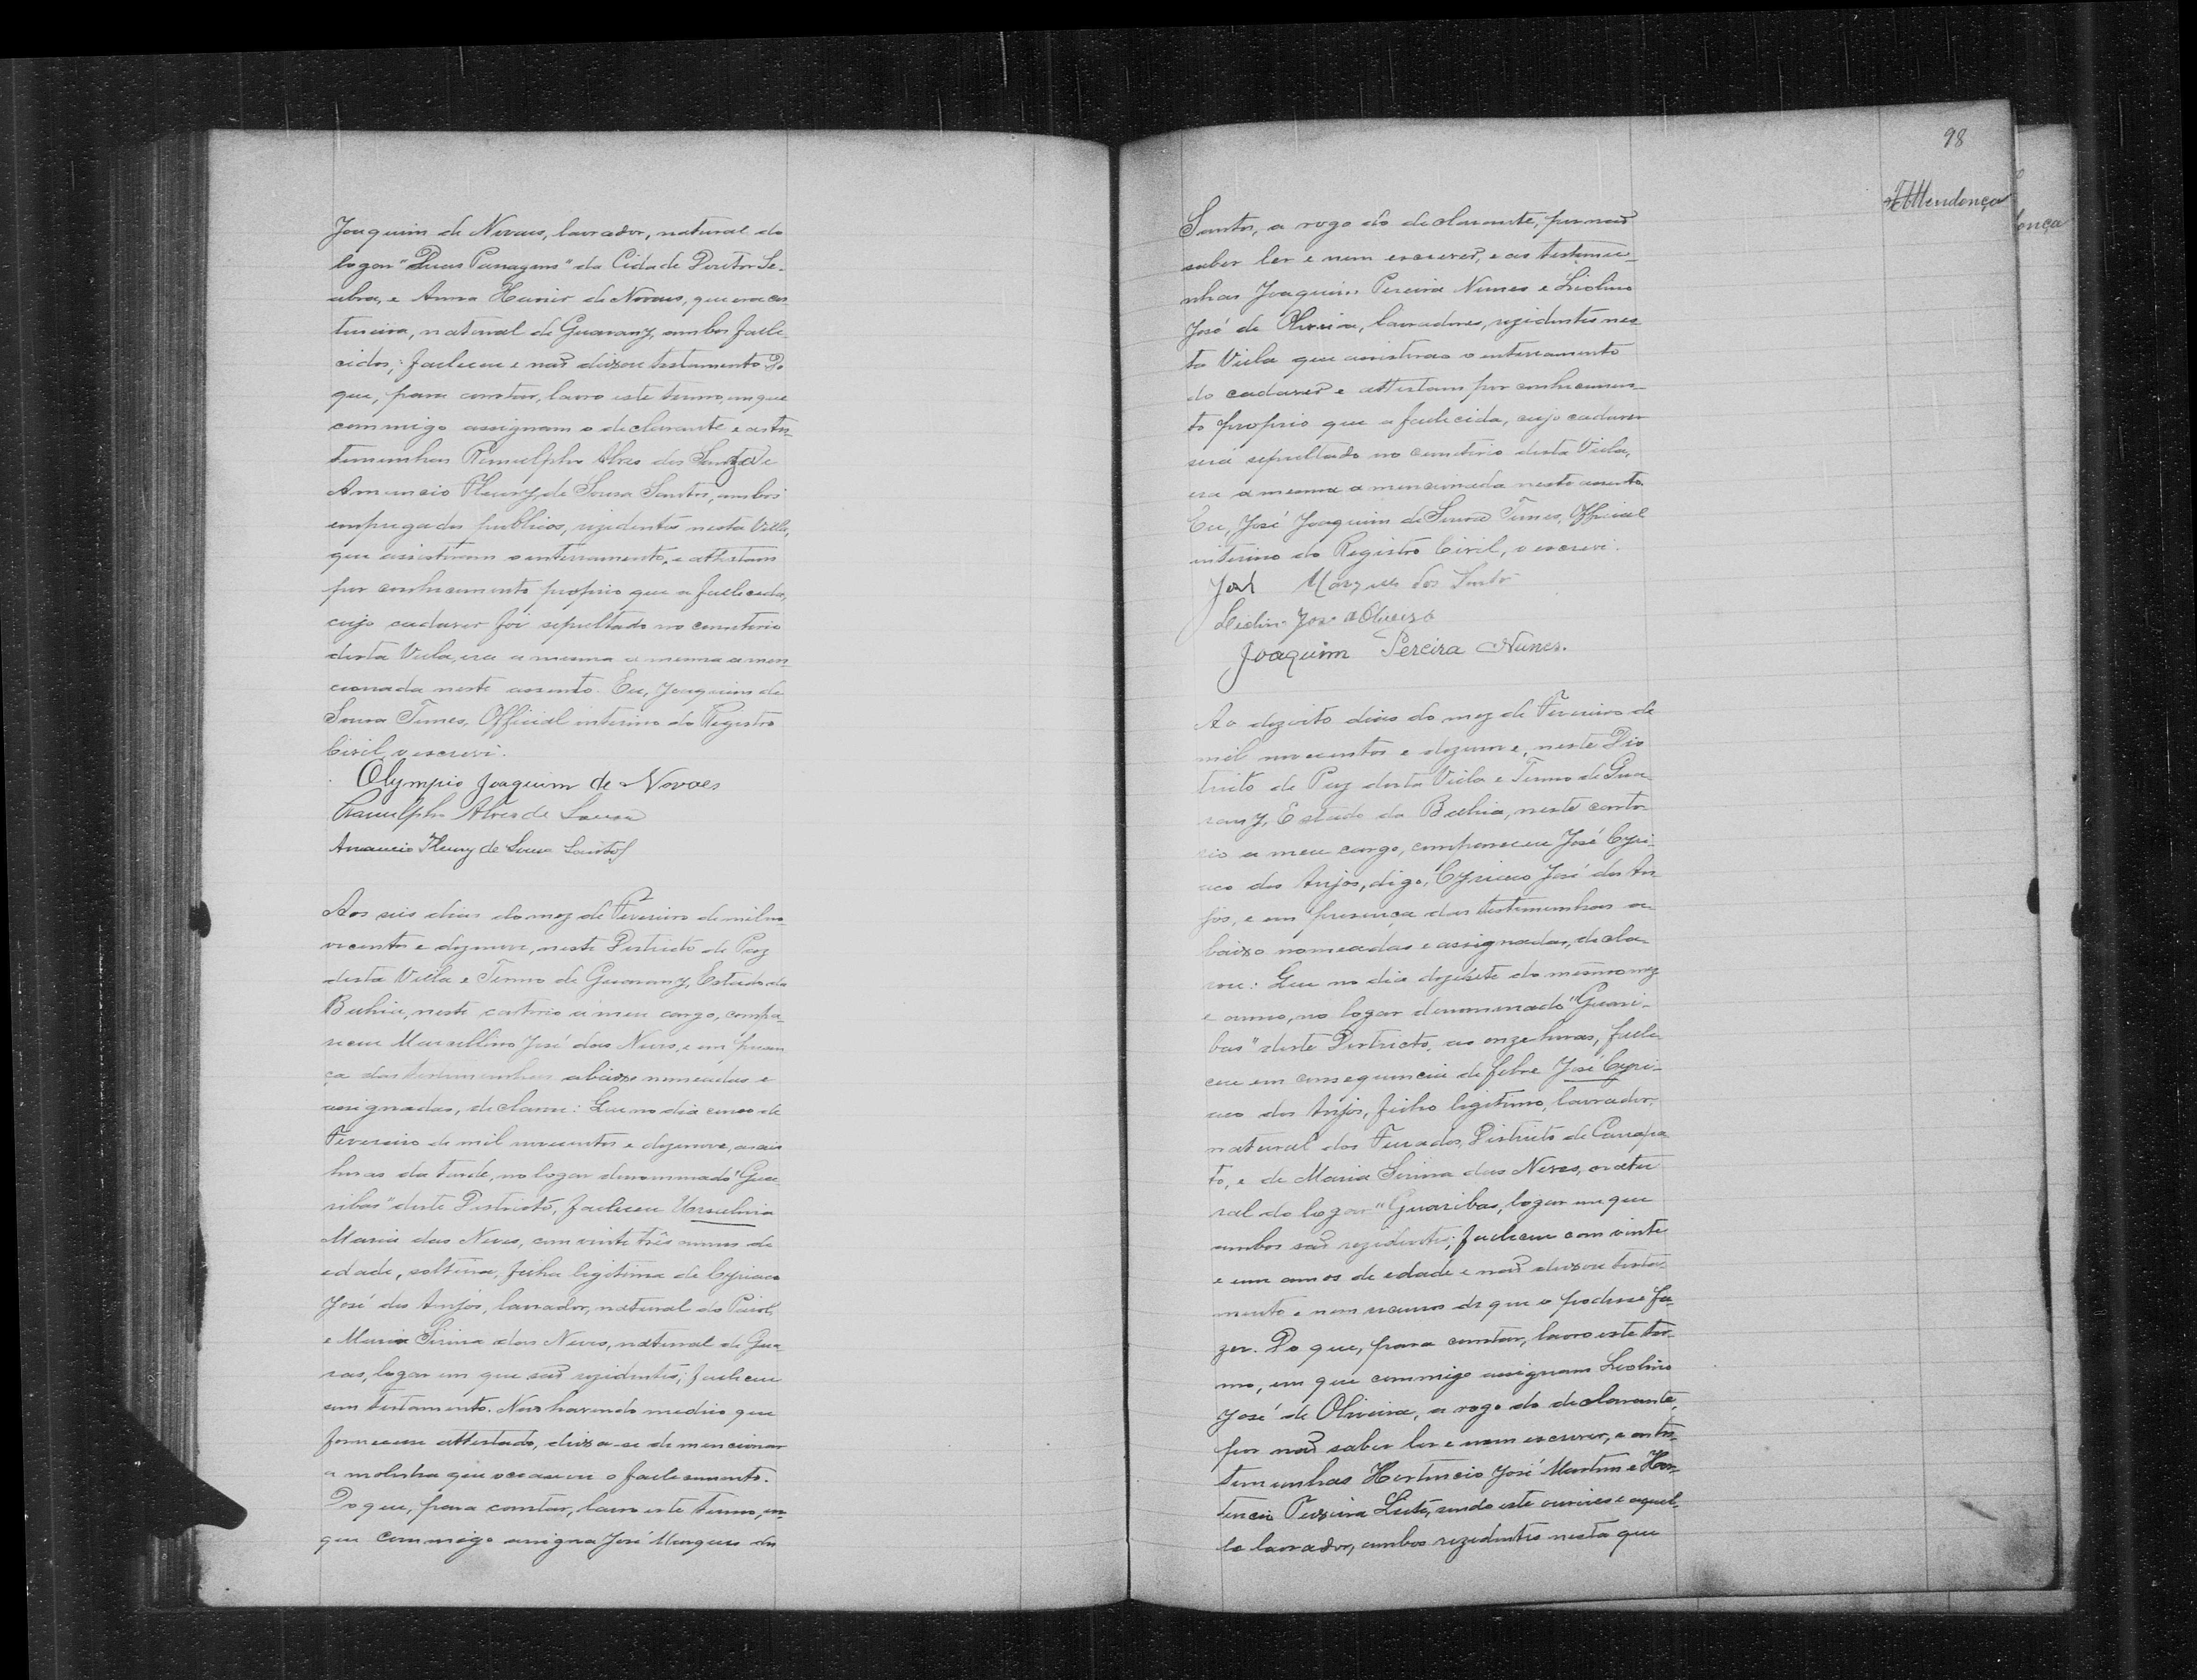 Joaquim de Novaes, lavrador, natural do
logar "Duas Passagens" da Cidade Doutor Se-
abra, e Anna Xavier de Novaes, que era cos-
tureira, natural de Guarany, ambos falle-
cidos; falleceu e não deixou testamento. Do
que, para constar, lavro este termo, em que
commigo assignam o declarante e as tes-
temunhas Ranulpho Alves de Souza e
Amancio Fleury de Sousa Santos, ambos
empregados publicos, rezidentes nesta Villa,
que assistiram o enterramento, e attestam
por conhecimento proprio que a fallecida,
cujo cadaver foi sepultado no cemeterio
desta Villa, era a mesma a mesma a men-
cionada neste assento. Eu, Joaquim de
Sousa Tunes, Official interino do Registro
Civil, o escrevi.
Olympio Joaquim de Novaes
Ranulpho Alves de Sousa
Amancio Fleury de Sousa Santos
Aos seis dias do mez de Fevereiro de mil no-
vecentos e dezenove, neste Districto de Paz
desta Villa e Termo de Guarany, Estado da
Bahia, neste cartorio a meu cargo, compa-
receu Marcellino José das Neves, e em presen-
ça das testemunhas abaixo nomeadas e
assignadas, declarou: Que no dia cinco de
Fevereiro de mil novecentos e dezenove, as seis
horas da tarde, no logar denominado "Gua-
ribas" deste Districto, falleceu Ursulina
Maria das Neves, com vinte três annos de
edade, solteira, filha legitima de Cyriaco
José dos Anjos, lavrador, natural do
e Maria Sirina das Neves, natural de Gua-
ras, logar em que são rezidentes; falleceu
sem testamento. Não havendo medico que
fornecesse attestado, deixa-se de mencionar
a molestia que occasionou o fallecimento.
Do que, para constar, lavro este termo, em
que commigo assigna José Marques dos
98
Mendonça
onça
Santos, a rogo do declarante, por não
saber ler e nem escrever, e as testemu-
nhas Joaquim Pereira Nunes e Liolino
José de Oliveira, lavradores, rezidentes nes-
ta Villa que assistirao o enterramento
do cadaver e attestam por conhecimen-
to proprio que a fallecida, cujo cadaver
será sepultado no cemeterio desta Villa,
era a mesma a mencionada neste assento.
Eu, José Joaquim de Sousa Tunes, Official
interino do Registro Civil, o escrevi.
José Marques dos Santos
José de Oliveira
Joaquim Pereira Nunes.
Ao dezoito dias do mez de Fevereiro de
mil novecentos e dezenove, neste Dis-
tricto de Paz desta Villa e Termo de Gua-
rany, Estado da Bahia, neste carto-
rio a meu cargo, compareceu José Cyri-
aco dos Anjos, digo, Cyriaco José dos An-
jos, e em presença das testemunhas a-
baixo nomeadas e assignadas, decla-
rou: Que no dia dezesete do mesmo mez
e anno, no logar denominado "Guari-
bas" deste Districto, as onze horas, falle-
ceu em consequencia de febre José Cyri-
aco dos Anjos, filho legitimo, lavrador,
natural dos Furados, Districto de Carrapa-
to, e de Maria Sirina das Neves, natu-
ral do logar "Guaribas, logar em que
ambos são rezidentes; falleceu com vinte
e um annos de edade e não deixou testa-
mento e nem de que o podesse fa-
zer. Do que, para constar, lavro este ter-
mo, em que commigo assignam Liolino
José de Oliveira, a rogo do declarante,
por não saber ler e nem escrever, e as tes-
temunhas Hortencio José Martins e Hor-
tencio Teixeira Leite, sendo este ourives e aquel-
le lavrador, ambos rezidentes nesta que